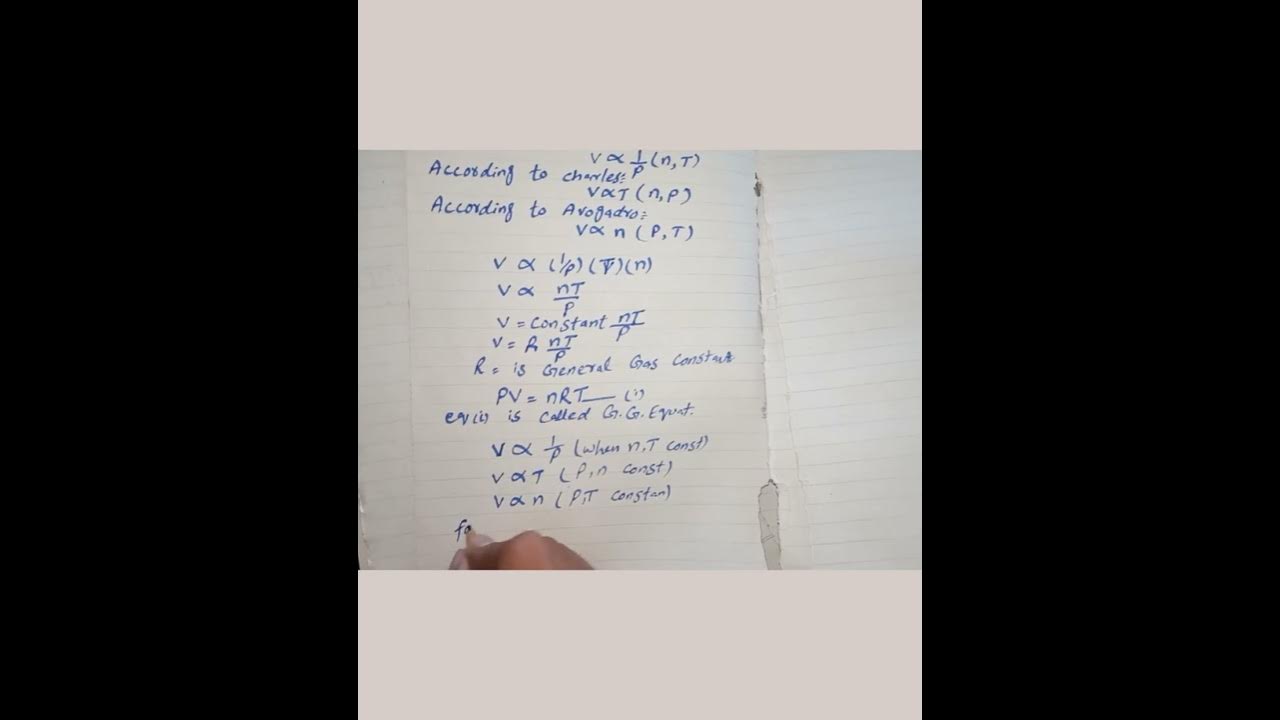 V ∝ 1/P (n, T)
According to charles:
V ∝ T (n, P)
According to Avogadro:
V ∝ n (P, T)
V ∝ (1/P) (T) (n)
V ∝ nT/P
V = Constant nT/P
V = R nT/P
R = is General Gas Constant
PV = nRT — (i)
eq (i) is called G.G. Equat.
V ∝ 1/P (when n, T const)
V ∝ T (P, n const)
V ∝ n (P, T constan)
fo